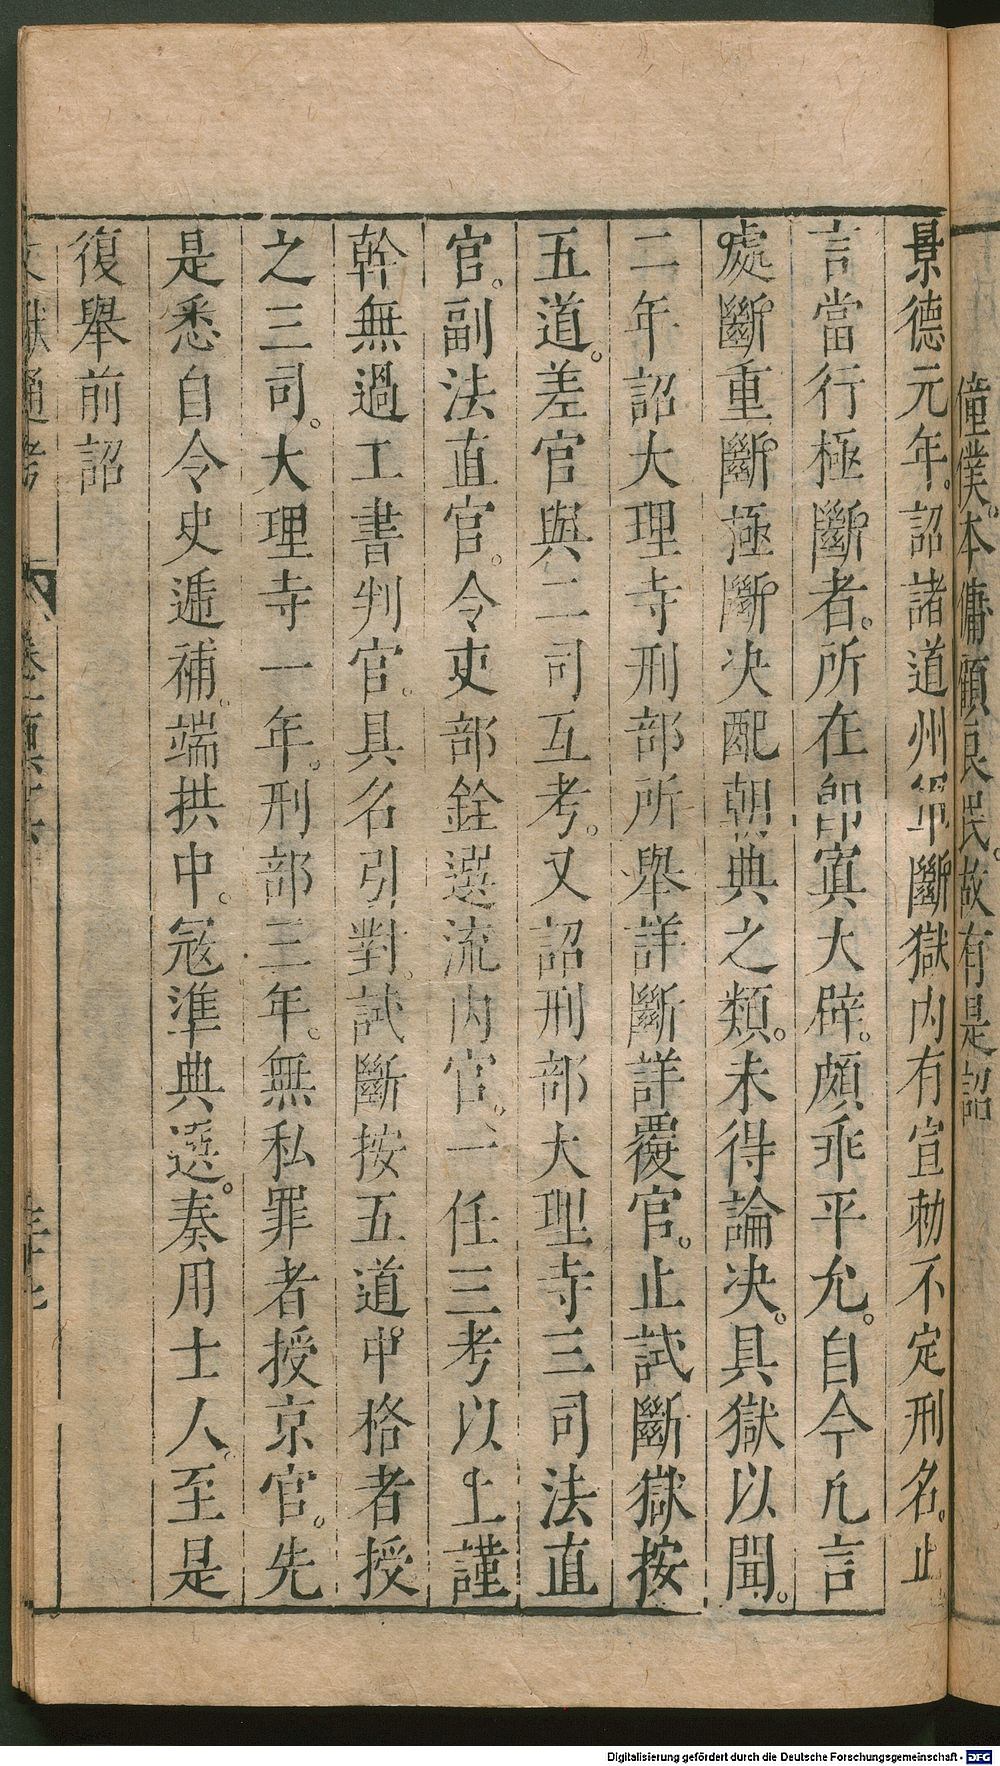 僮僕。本傭顧良民。故有是詔
景德元年。詔諸道州軍斷獄内有宣勅不定刑名。止
言當行極斷者。所在即寘大辟。頗乖平允。自今凡言
處斷重斷極斷决配朝典之類。未得論决。具獄以聞。
二年詔大理寺刑部所舉詳斷詳覆官。止試斷獄按
五道。差官與二司互考。又詔刑部大理寺三司法直
官。副法直官。令吏部銓選流内官。一任三考以上謹
幹無過工書判官。具名引對。試斷按五道。中格者授
之三司。大理寺一年。刑部三年。無私罪者授京官。先
是悉自令史遞補。端拱中。冦準典選。奏用士人。至是
復舉前詔
文獻通考
Digitalisierung gefördert durch die Deutsche Forschungsgemeinschaft - DFG